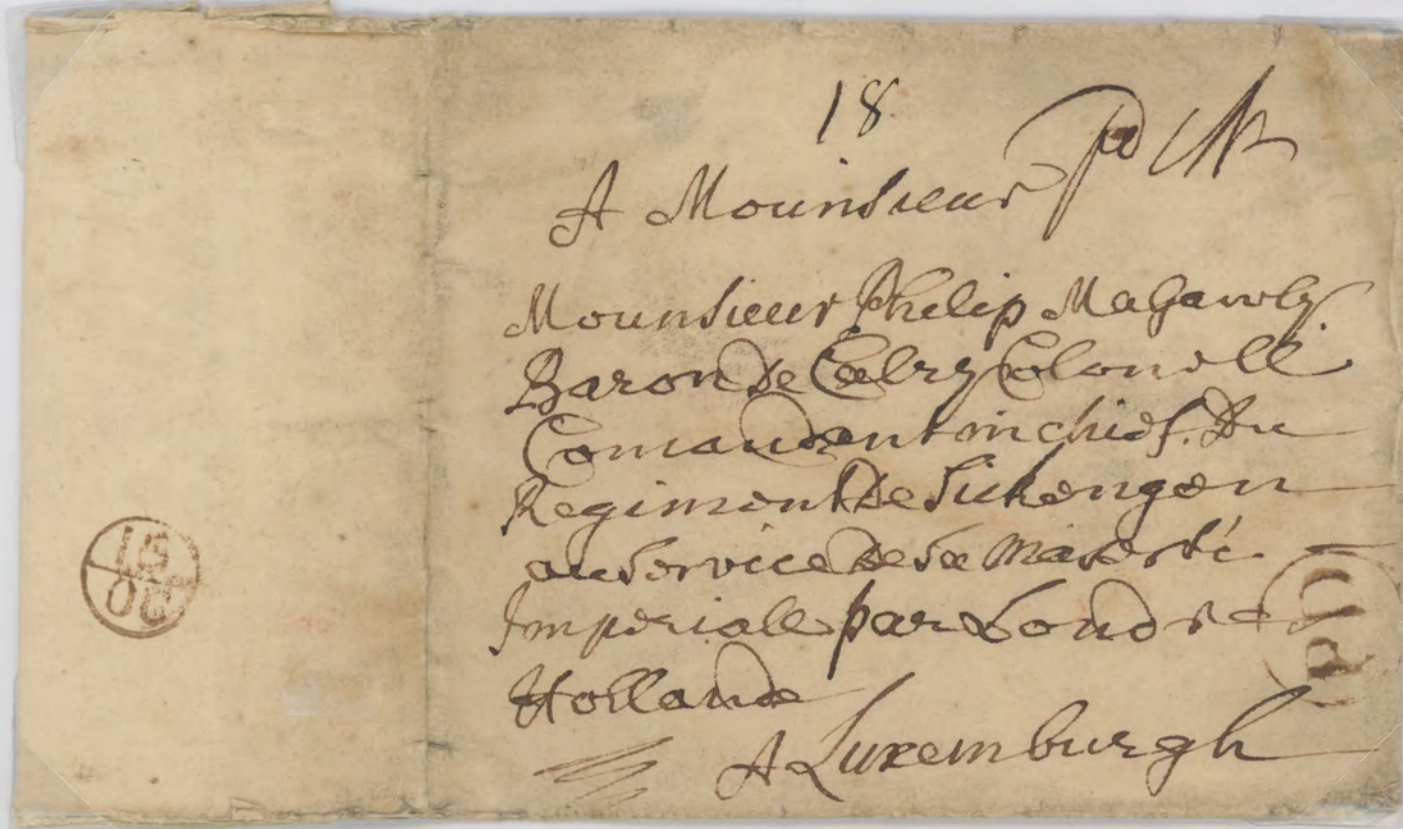 18
pd
A Mounsieur
Mounsieur Philip Magawly
Baron De Calry Colonell
Comandent in chief. Du
Regiment De Sickengen
au Service De Sa Majesté
Imperiall par Londres
Hollande
A Luxemburgh
15
OC
PD